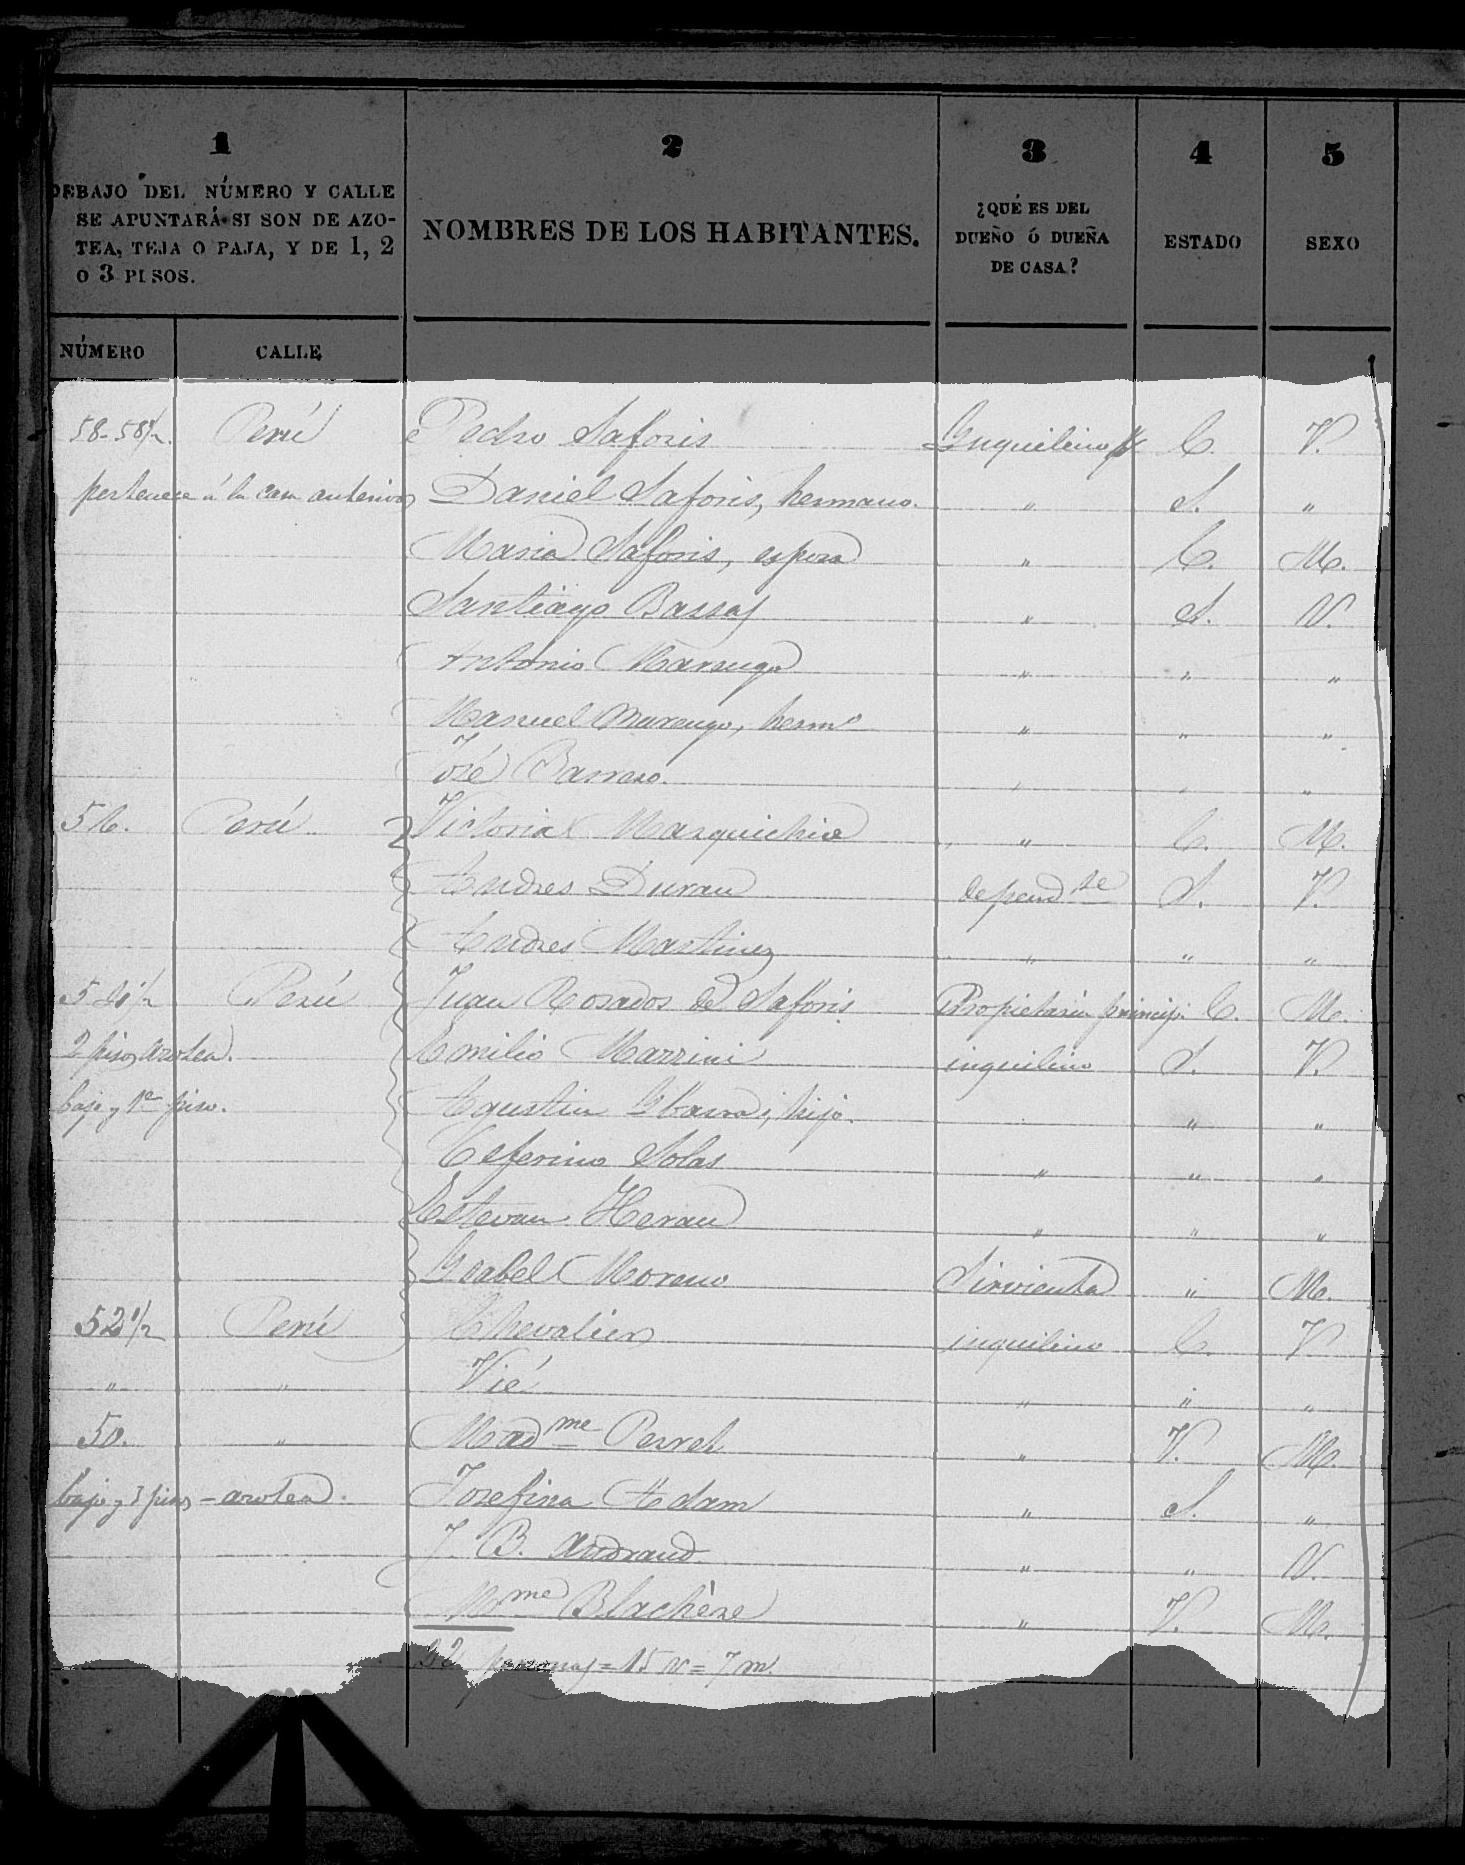 1 2 3 4 5
DEBAJO DEL NÚMERO Y CALLE
SE APUNTARÁ SI SON DE AZO-
TEA, TEJA O PAJA, Y DE 1, 2
O 3 PISOS.
NOMBRES DE LOS HABITANTES.
¿QUÉ ES DEL
DUEÑO Ó DUEÑA
DE CASA?
ESTADO
SEXO
NÚMERO CALLE
58-58½ Perú Pedro Saforis Inquilino C. V.
pertenece á la casa anterior Daniel Saforis, hermano. " S. "
Maria Saforis, esposa " C. M.
Santiago Bassas " S. V.
Antonio Marengo " " "
Manuel Marengo, hermº " " "
José Barrero. " " "
56. Perú Victoria Marquichie " C. M.
Andres Duran dependte S. V.
Andres Martinez " " "
54½ Perú Juan Rosados de Saforis Propietaria princip. C. M.
2 pisos azotea. Emilio Marzini inquilino S. V.
bajo y 1er piso. Agustin Ibarra, hijo. " "
Ceferino Solas " " "
Estevan Heran " " "
Ysabel Moreno Sirvienta " M.
52½ Perú Chevalier inquilino C. V.
" " Vié " " "
50. " Madme Perret " V. M.
bajo y 3 pisos - azotea. Josefina Adam " S. "
J. B. Andraud " " V.
Mme Blachère " V. M.
22 personas = 15 v = 7 m.